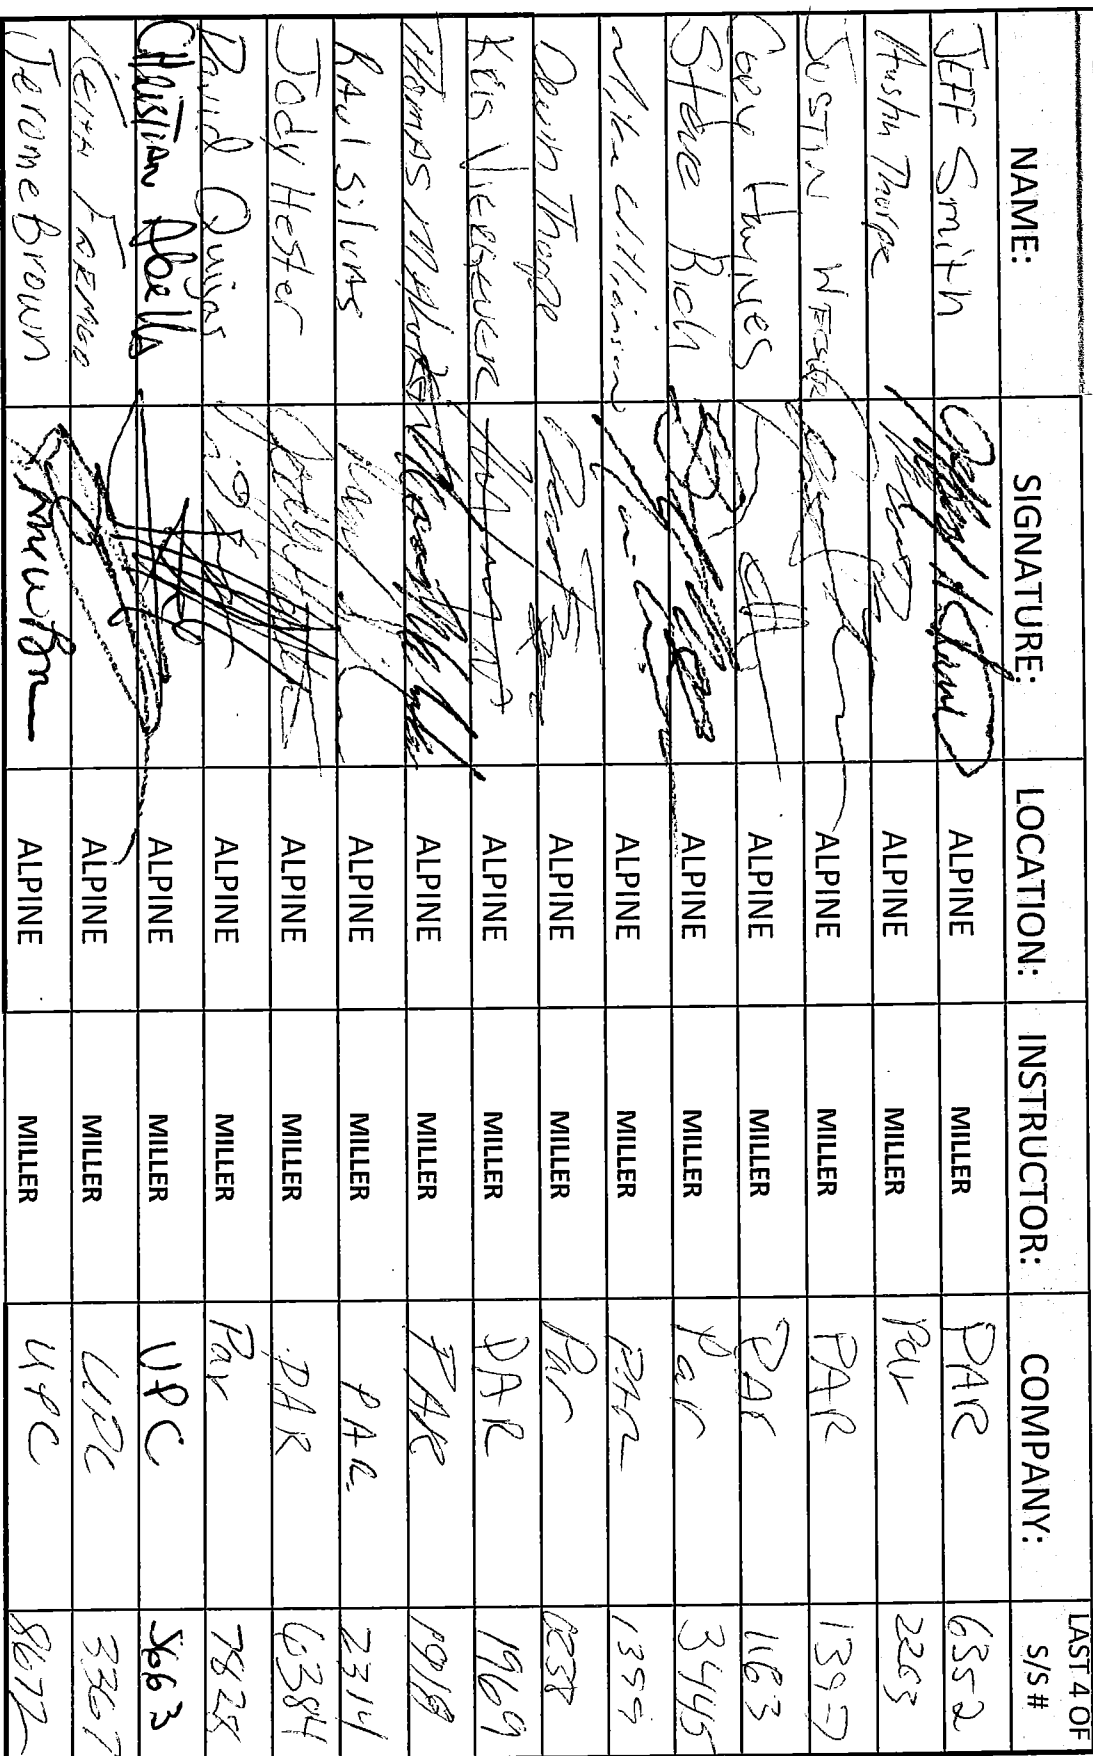 NAME: SIGNATURE: LOCATION: INSTRUCTOR: COMPANY: LAST 4 OF S/S #
JEFF Smith ALPINE MILLER PAR 6352
Austin Thorpe ALPINE MILLER Par 2263
JUSTIN ALPINE MILLER PAR 1397
Cory Haynes ALPINE MILLER PAR 1163
Steve Rich ALPINE MILLER Par 3445
Mike Williamson ALPINE MILLER PAR 1399
Thorpe ALPINE MILLER Par
Kris ALPINE MILLER PAR 1969
THOMAS ALPINE MILLER PAR
RAul Silvas ALPINE MILLER PAR 2314
Jody Hester ALPINE MILLER PAR 6384
David Quijas ALPINE MILLER Par 7828
CHRISTIAN Abella ALPINE MILLER UPC
KEITH ALPINE MILLER UPC 3367
Jerome Brown ALPINE MILLER UPC 8672